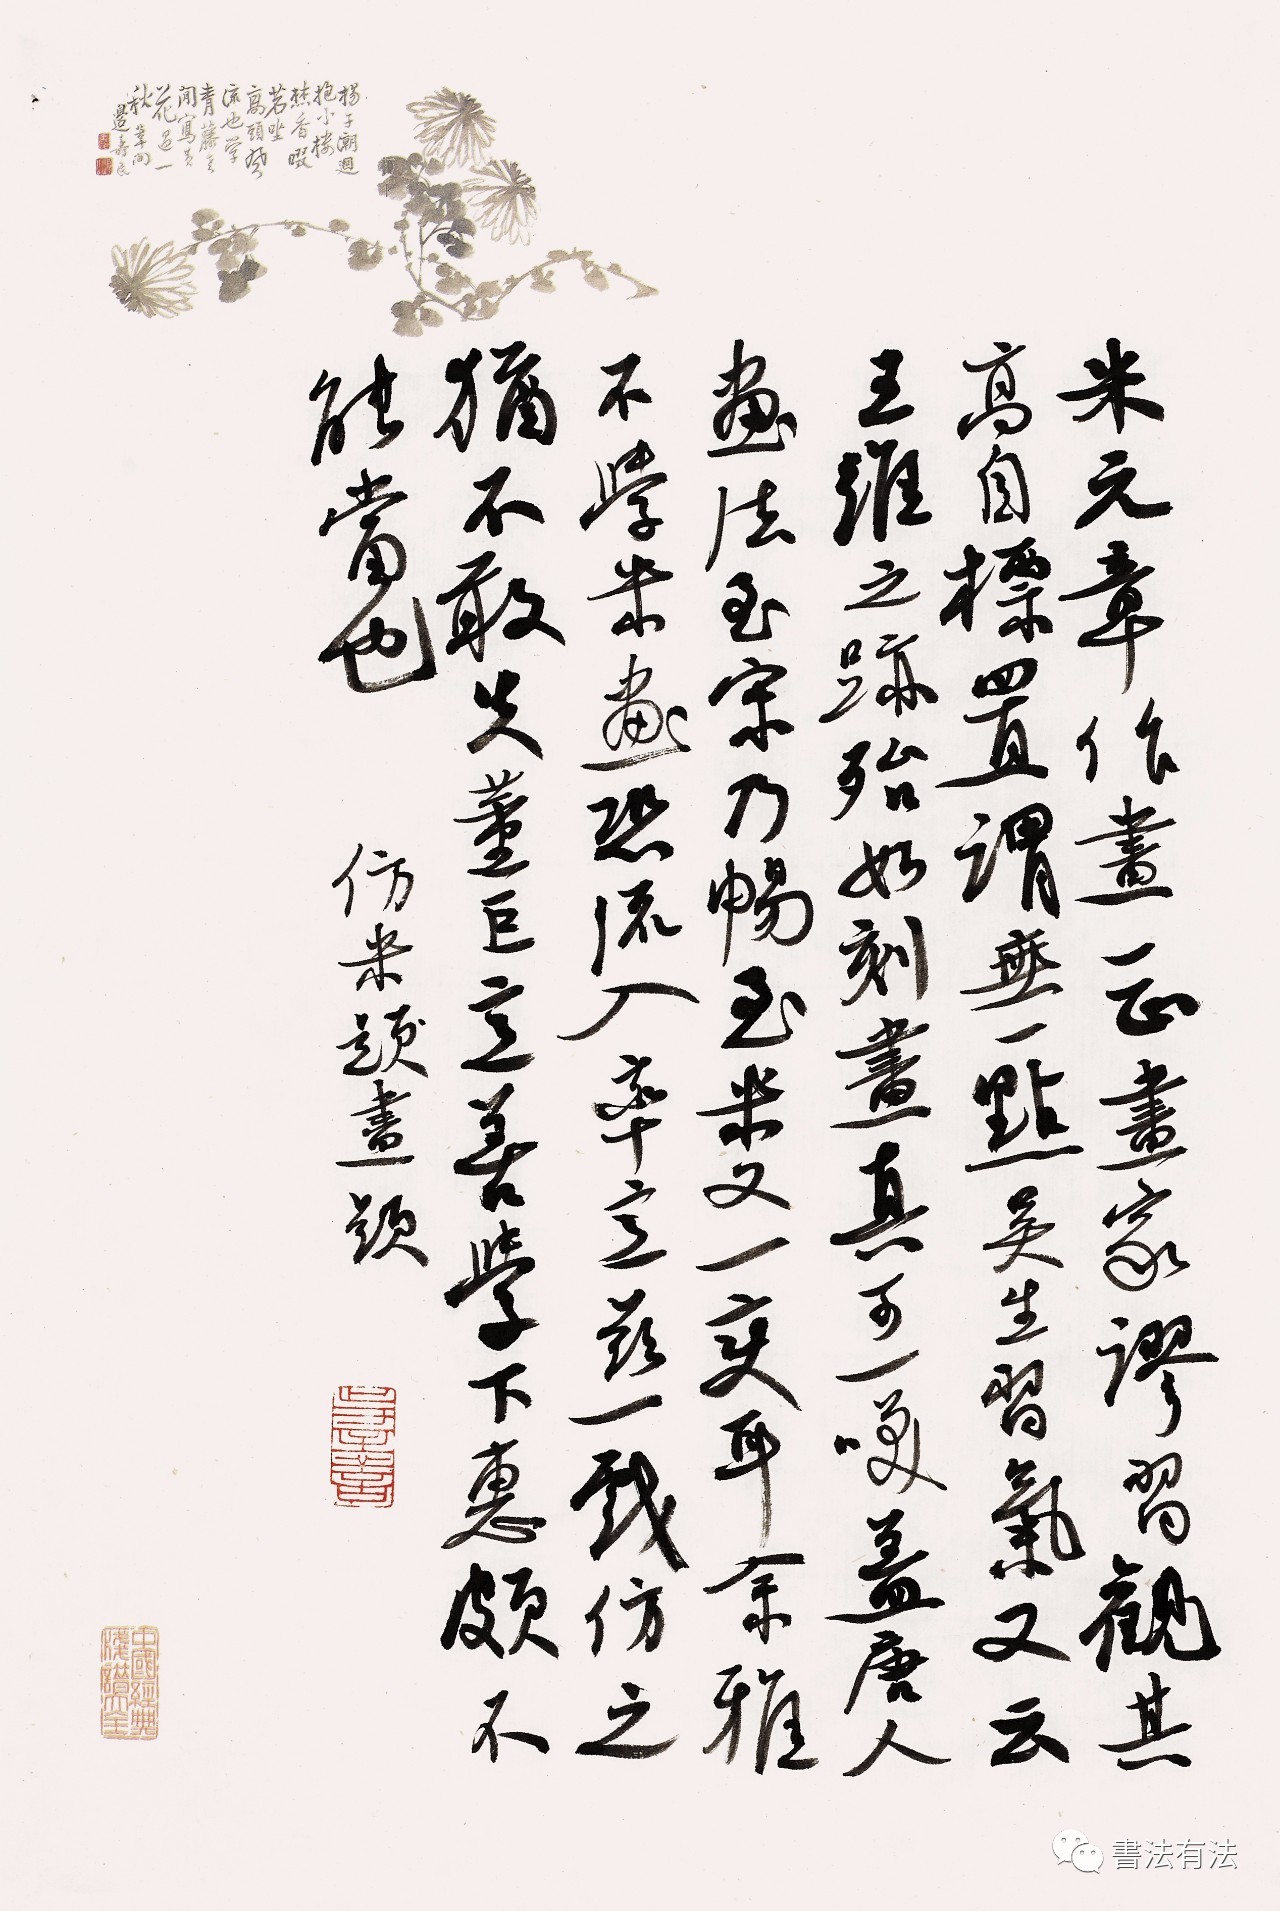 米元章作畫一正畫家謬習觀其
高自標置謂無一點吳生習氣又云
王維之跡殆如刻畫真可一㗛蓋唐人
畫法至宋乃暢至米又一变耳余雅
不學米畫恐流入率意茲一戲仿之
猶不敢失董巨意善學下惠頗不
能當也
仿米題畫題
楊子潮迴
抱小樓
焚香啜
茗坐
高頭
流也學
青藤
閒寫
花
秋葦間
邊壽民
中國經典
淺譜大全
書法有法